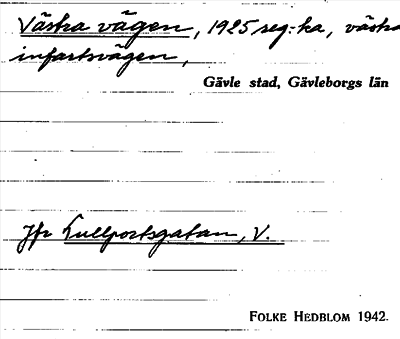 Västra vägen, 1925 reg:ka, västra
infartsvägen,
Gävle stad, Gävleborgs län
Jfr Tullportsgatan, V.
FOLKE HEDBLOM 1942.